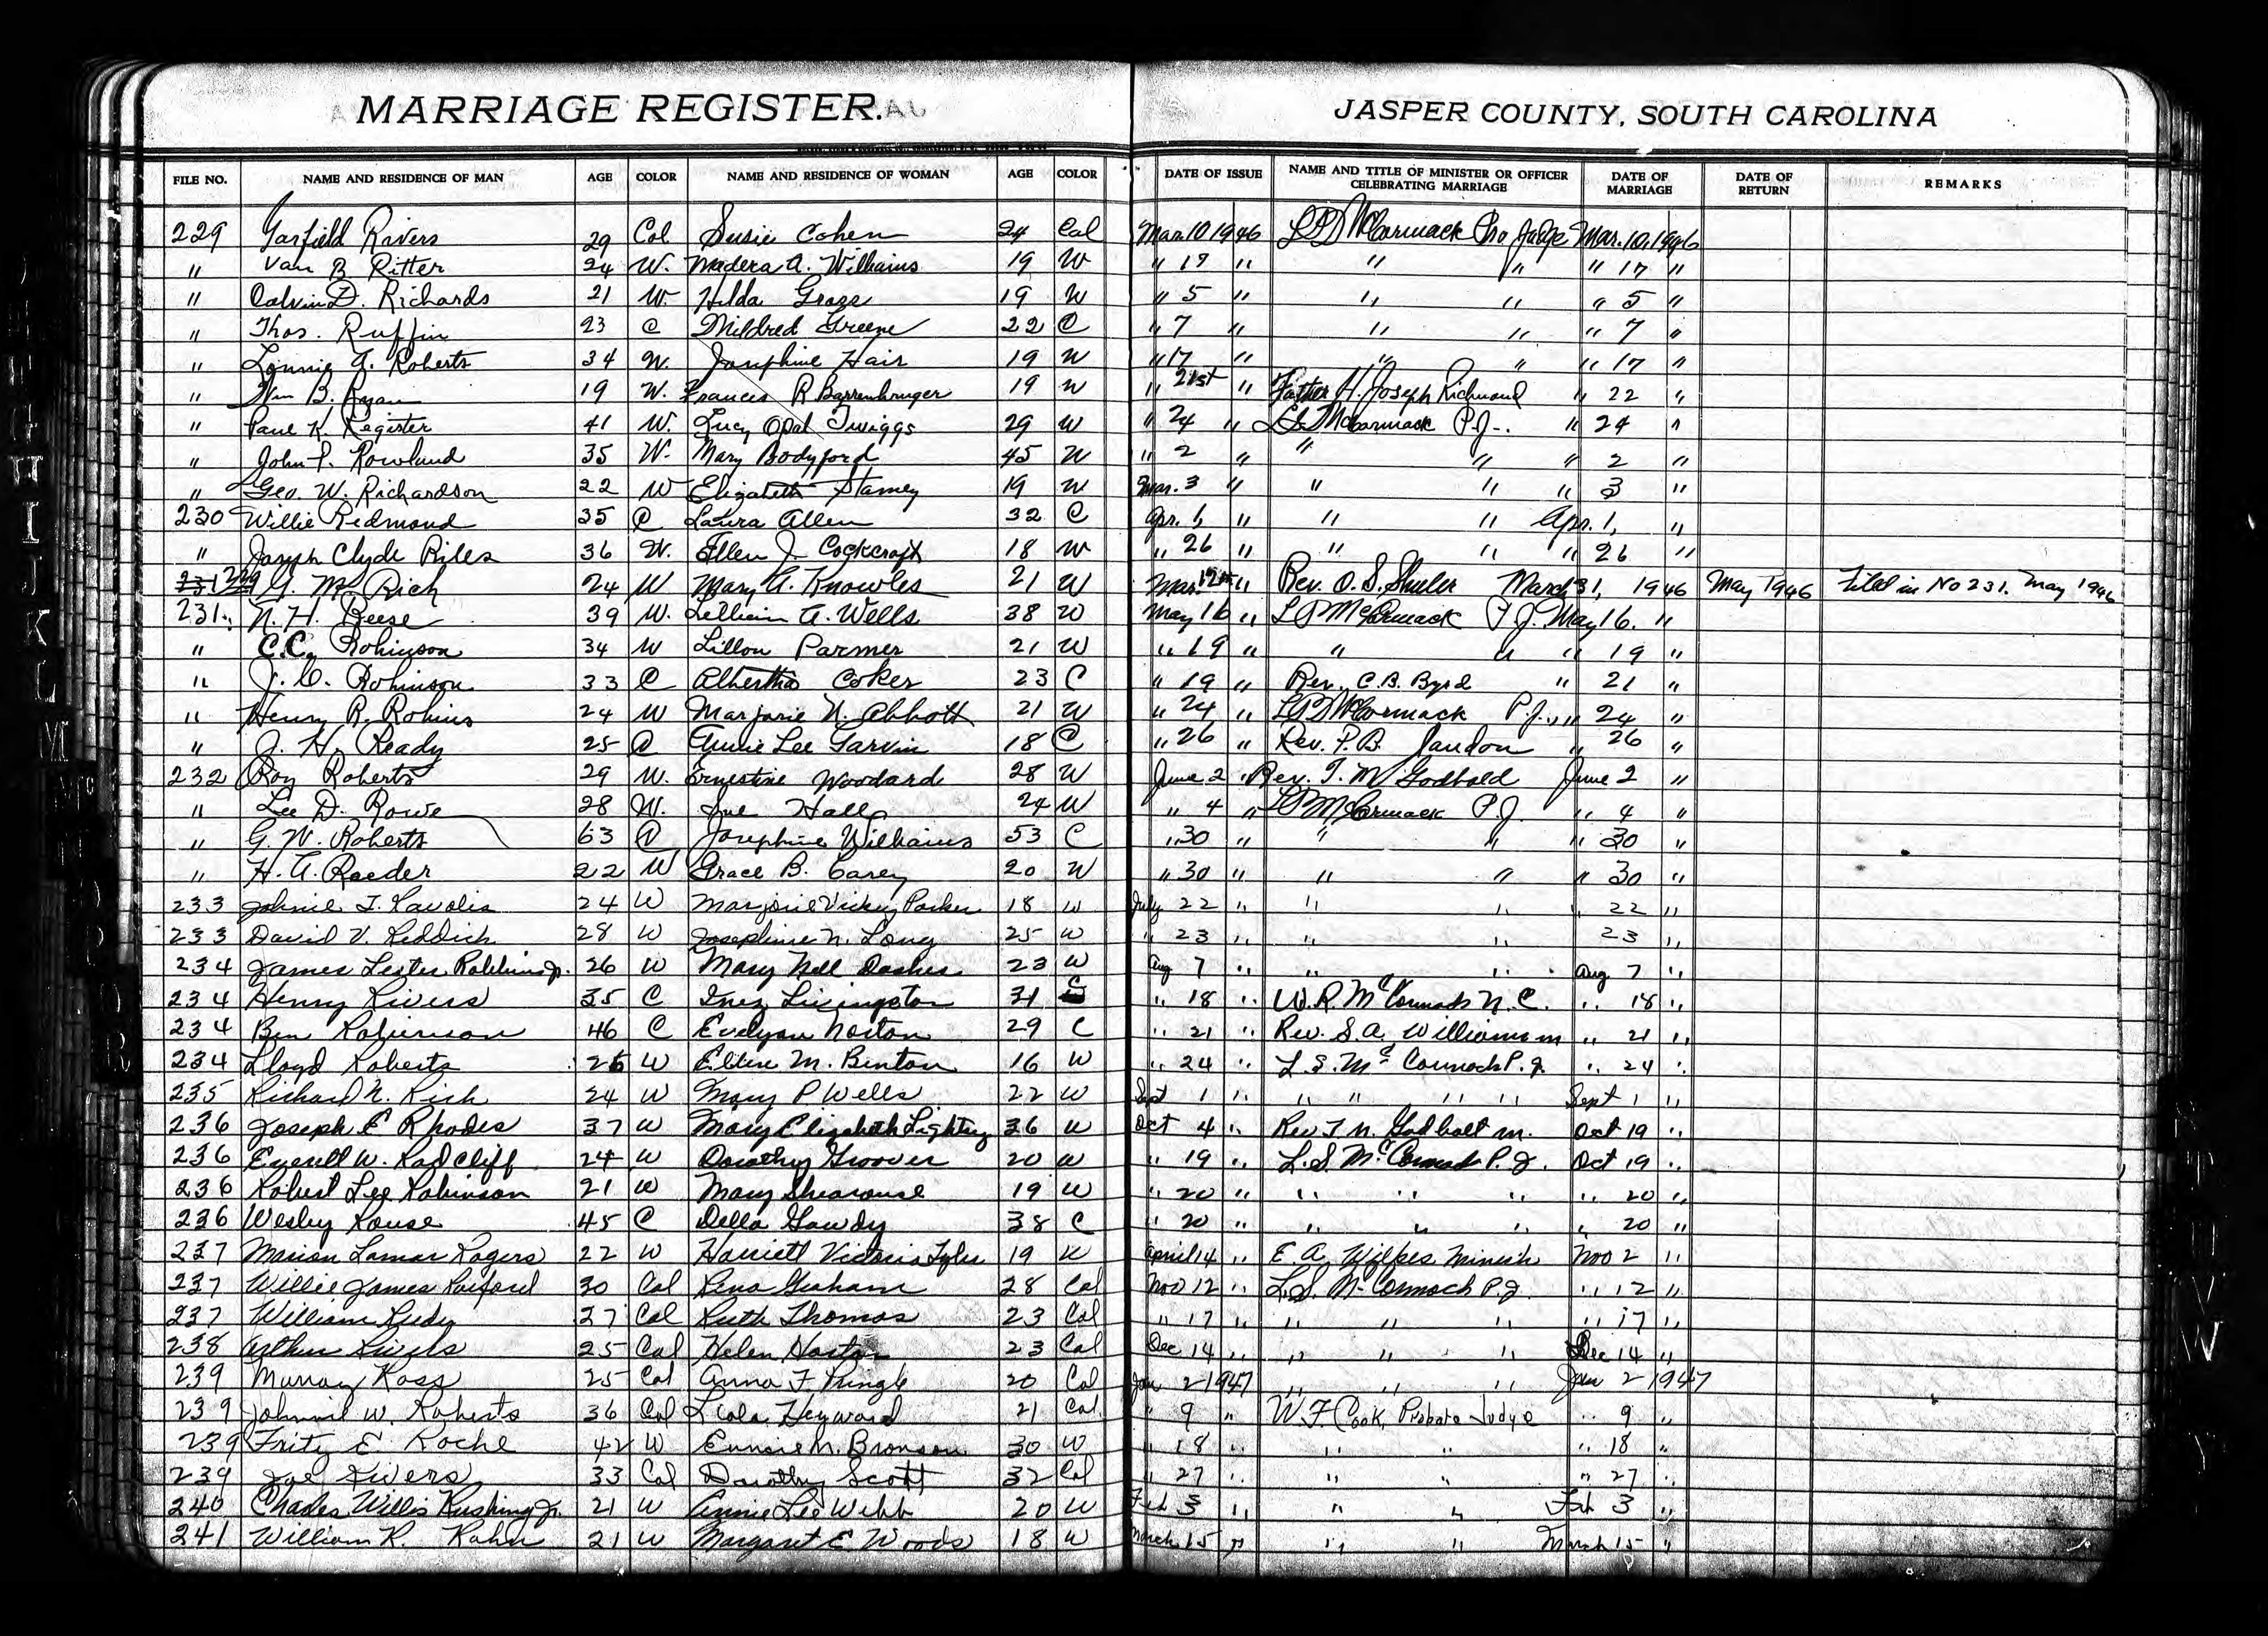 MARRIAGE REGISTER.
JASPER COUNTY, SOUTH CAROLINA
FILE NO. NAME AND RESIDENCE OF MAN AGE COLOR NAME AND RESIDENCE OF WOMAN AGE COLOR DATE OF ISSUE NAME AND TITLE OF MINISTER OR OFFICER CELEBRATING MARRIAGE DATE OF MARRIAGE DATE OF RETURN REMARKS
229 Garfield Rivers 29 Col Susie Cohen 24 Col Mar. 10 1946 McCormack Pro Judge Mar. 10, 1946
" Van B. Ritter 24 W. Madera A. Williams 19 W " 17 " " " " 17 "
" Calvin D. Richards 21 W. Hilda 19 W " 5 " " " " 5 "
" Thos. Ruffin 23 C Mildred Greene 22 C " 7 " " " " 7 "
" Lonnie A. Roberts 34 W. Josephine Hair 19 W " 17 " " " " 17 "
" Wm B. Ryan 19 W. Frances R 19 W " 21st " Father H. Joseph Richmond " 22 "
" Paul K. Register 41 W. Lucy Opal Twiggs 29 W " 24 " McCormack P.J. " 24 "
" John P. Rowland 35 W. Mary Bodyford 45 W " 2 " " " " 2 "
" Geo. W. Richardson 22 W Elizabeth Stamey 19 W Mar. 3 " " " " 3 "
230 Willie Redmond 35 C Laura Allen 32 C Apr. 1, " " " Apr. 1, "
" Joseph Clyde Riles 36 W. Ellen J. Cockcroft 18 W " 26 " " " " 26 "
231 229 G. M. Rich 24 W Mary A. Knowles 21 W Mar. 12th " Rev. O. S. Shuler March 31, 1946 May 1946 Filed in No 231. May 1946
231. N. H. Reese 39 W. Lillian A. Wells 38 W May 16 " McCormack P.J. May 16. "
" C.C. Robinson 34 W Lillou Parmer 21 W " 19 " " " " 19 "
" J. C. Robinson 33 C Albertha Coker 23 C " 19 " Rev. C.B. Byrd " 21 "
" Henry R. Robins 24 W Marjorie N. Abbott 21 W " 24 " McCormack P.J., " 24 "
" J. H. Ready 25 C Annie Lee Garvin 18 C " 26 " Rev. P. B. Jaudon " 26 "
232 Roy Roberts 29 W. Ernestine Woodard 28 W June 2 " Rev. T. M Godbold June 2 "
" Lee D. Rowe 28 W. Hall 24 W " 4 " McCormack P.J. " 4 "
" G. W. Roberts 63 C Josephine Williams 53 C " 30 " " " " 30 "
" H. A. Raeder 22 W Grace B. Carey 20 W " 30 " " " " 30 "
233 Johnie 24 W Marjorie Vickey Parker 18 W July 22 " " " " 22 "
233 David V. Reddick 28 W Josephine N. Long 25 W " 23 " " " 23 "
234 James Lester Robbins Jr. 26 W Mary Nell Dasher 23 W Aug 7 " " " Aug 7 "
234 Henry Rivers 35 C Inez Livingston 31 C " 18 " W. R. McCormack N. C. " 18 "
234 Ben Robinson 46 C Evelyn Norton 29 C " 21 " Rev. S. A. Williams m " 21 "
234 Lloyd Roberts 26 W M. Benton 16 W " 24 " L. S. McCormack P. J. " 24 "
235 Richard N. Rich 24 W Mary P Wells 22 W Sept 1 " " " " " Sept 1 "
236 Joseph E Rhodes 37 W Mary Elizabeth 36 W Oct 4 " Rev T. M. Godbolt m. Oct 19 "
236 Everett W. Radcliff 24 W Dorothy Groover 20 W " 19 " L. S. McCormack P. J. Oct 19 "
236 Robert Lee Robinson 21 W Mary Shearouse 19 W " 20 " " " " " 20 "
236 Wesley Rouse 45 C Della Gawdy 38 C " 20 " " " " " 20 "
237 Marion Lamar Rogers 22 W Harriett Victoria Tyler 19 W April 14 " E. A. Wilkes Minister Nov 2 "
237 Willie James Raiford 30 Col Rena Graham 28 Col Nov 12 " L. S. McCormack P. J. " 12 "
237 William Rudy 27 Col Ruth Thomas 23 Col " 17 " " " " " 17 "
238 Arthur Rivers 25 Col Helen Horton 23 Col Dec 14 " " " " Dec 14 "
239 Murray Ross 25 Col Anna F. Pringle 20 Col Jan 2 1947 " " " Jan 2 1947
239 Johnnie W. Roberts 36 Col Leola Heyward 21 Col " 9 " W. F. Cook, Probate Judge " 9 "
239 Fritz E. Roche 42 W Eunice M. Bronson 30 W " 18 " " " " 18 "
239 Joe Rivers 33 Col Dorothy Scott 32 Col " 27 " " " " 27 "
240 Charles Willis Rushing Jr. 21 W Annie Lee Webb 20 W Feb 3 " " " Feb 3 "
241 William R. Rahn 21 W Margaret E Woods 18 W March 15 " " " March 15 "